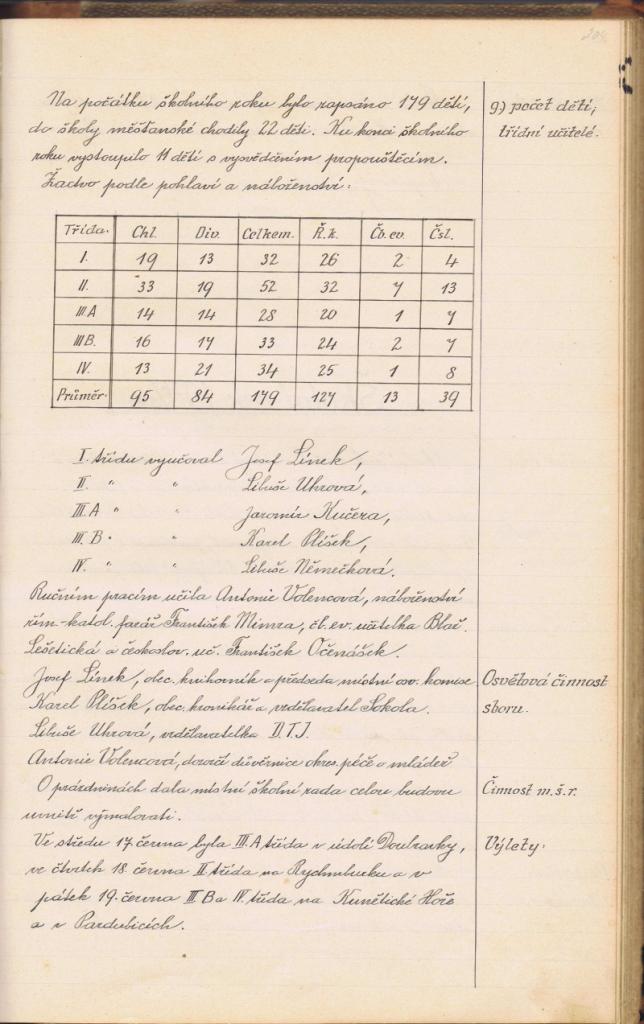 204
Na počátku školního roku bylo zapsáno 179 dětí,
do školy měšťanské chodily 22 děti. Ku konci školního
roku vystoupilo 11 dětí s vysvědčením propouštěcím.
Žactvo podle pohlaví a náboženství:
g.) počet dětí;
třídní učitelé.
Třída. Chl. Div. Celkem. Ř.k. Čb.ev. Čsl.
I. 19 13 32 26 2 4
II. 33 19 52 32 7 13
III.A 14 14 28 20 1 7
III B. 16 17 33 24 2 7
IV. 13 21 34 25 1 8
Průměr. 95 84 179 127 13 39
I. třídu vyučoval Josef Línek,
II. " " Libuše Uhrová,
III.A " " Jaromír Kučera,
III.B. " Karel Plíšek,
IV. " " Libuše Němečková.
Ručním pracím učila Antonie Volencová, náboženství
řím.-katol. farář František Mimra, čb. ev. učitelka Blaž.
Lešetická a českoslov. uč. František Očenášek.
Josef Línek, obec. knihovník a předseda místní osv. komise
Karel Plíšek, obec. kronikář a vzdělavatel Sokola.
Libuše Uhrová, vzdělavatelka D.T.J.
Antonie Volencová, dozorčí důvěrnice okres. péče o mládež
Osvětová činnost
sboru.
O prázdninách dala místní školní rada celou budovu
uvnitř vymalovati.
Činnost m.š.r.
Ve středu 17. června byla III.A třída v údolí Doubravky,
ve čtvrtek 18. června II. třída na Rychmburku a v
pátek 19. června III.B a IV. třída na Kunětické Hoře
a v Pardubicích.
Výlety.